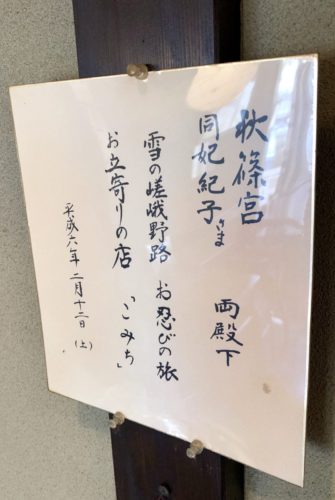 秋篠宮
同妃紀子さま 両殿下
雪の嵯峨野路 お忍びの旅
お立寄りの店 「こみち」
平成六年二月十二日(土)